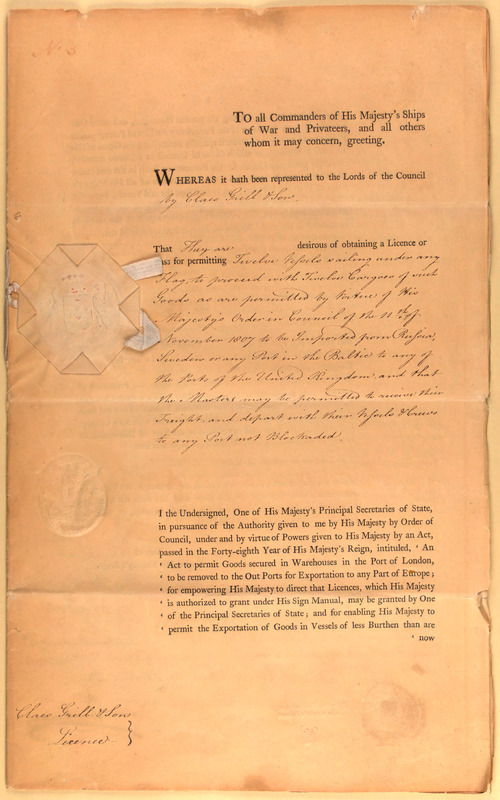 No 3
TO all Commanders of His Majesty's Ships
of War and Privateers, and all others
whom it may concern, greeting.
WHEREAS it hath been represented to the Lords of the Council
by Claes Grill & Son
That They are desirous of obtaining a Licence or
Pass for permitting Twelve Vessels sailing under any
Flag, to proceed with Twelve Cargoes of such
Goods as are permitted by Virtue of His
Majesty's Order in Council of the 11th of
November 1807 to be Imported from Russia,
Sweden or any Port in the Baltic to any of
the Ports of the United Kingdom and that
the Masters may be permitted to receive their
Freight and depart with their Vessels & Crews
to any Port not Blockaded.
I the Undersigned, One of His Majesty's Principal Secretaries of State,
in pursuance of the Authority given to me by His Majesty by Order of
Council, under and by virtue of Powers given to His Majesty by an Act,
passed in the Forty-eighth Year of His Majesty's Reign, intituled, ' An
' Act to permit Goods secured in Warehouses in the Port of London,
' to be removed to the Out Ports for Exportation to any Part of Europe;
' for empowering His Majesty to direct that Licences, which His Majesty
' is authorized to grant under His Sign Manual, may be granted by One
' of the Principal Secretaries of State; and for enabling His Majesty to
' permit the Exportation of Goods in Vessels of less Burthen than are
' now
Claes Grill & Son
Licence